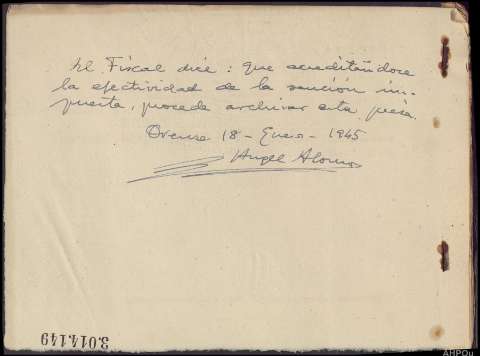 El Fiscal dice: que acreditándose
la efectividad de la sanción im-
puesta, procede archivar esta pieza.
Orense 18 - Enero - 1945
Angel Alonso
3.014.149
AHPOu